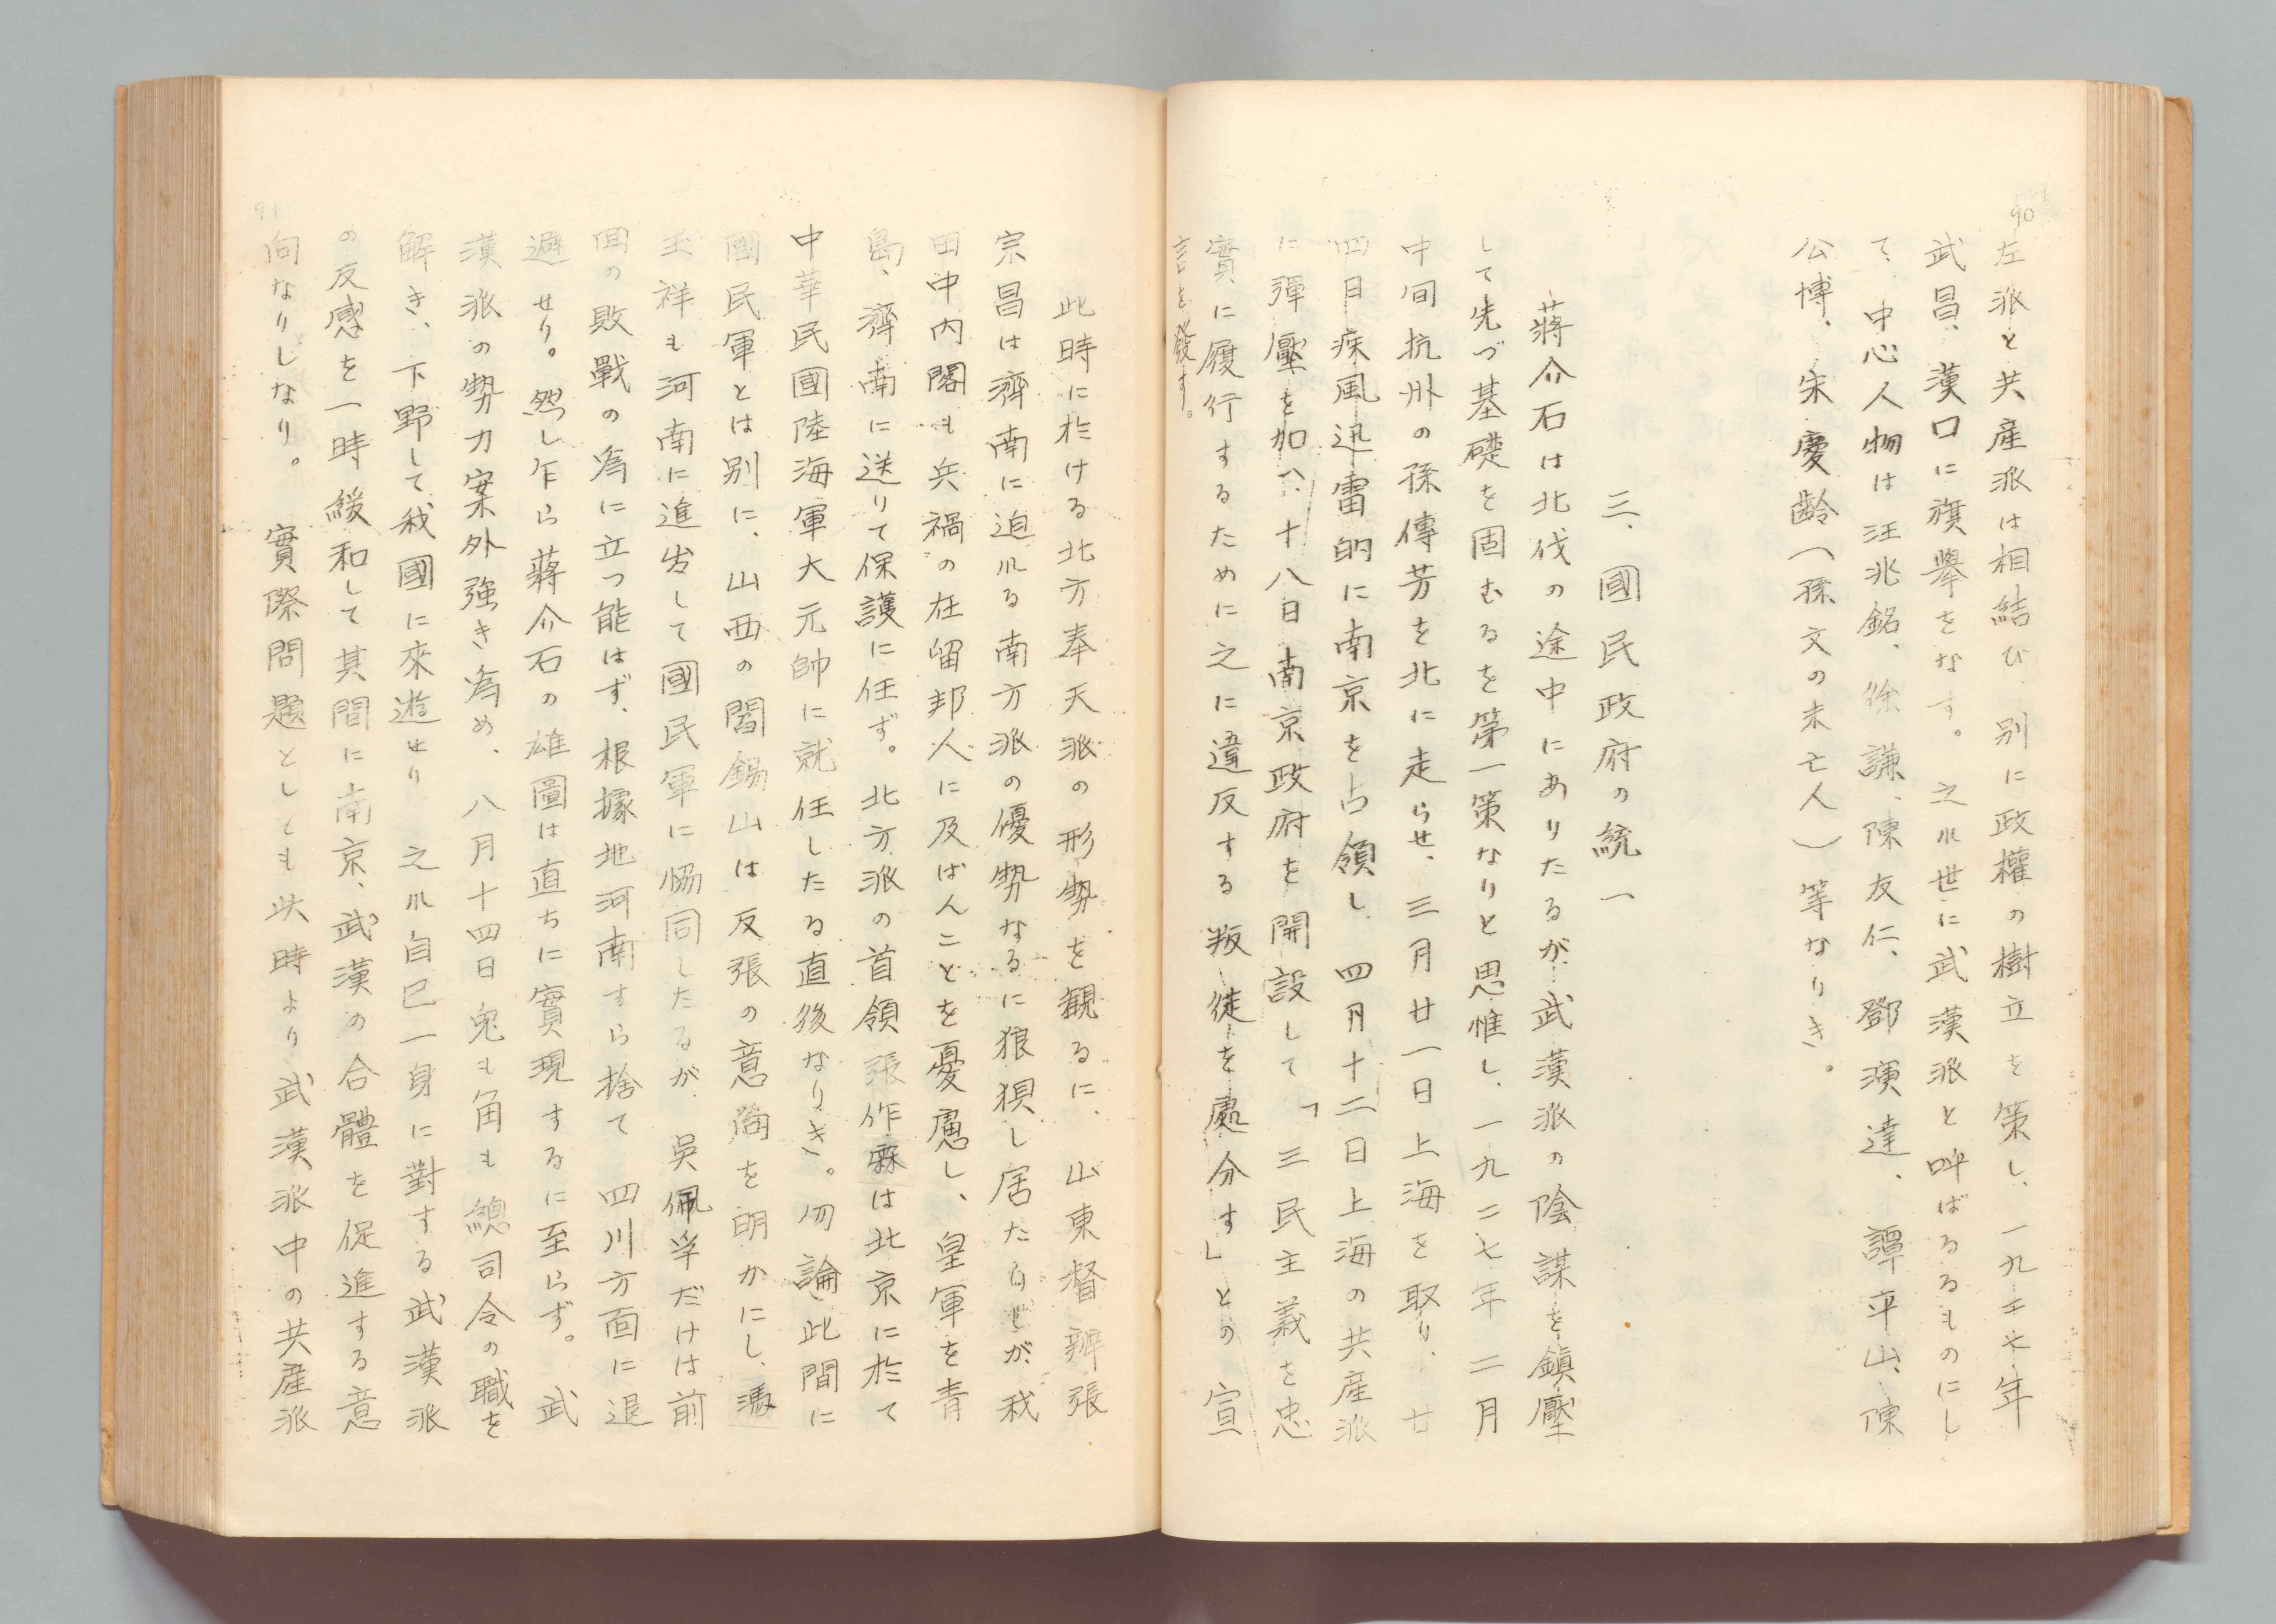 90
左派と共産派は相結び、別に政權の樹立を策し、一九二七年
武昌、漢口に旗擧をなす。之れ世に武漢派と呼ばるるものにし
て、中心人物は汪兆銘、徐謙、陳友仁、鄧演達、譚平山、陳
公博、宋慶齢(孫文の未亡人)等なりき。
三、國民政府の統一
蔣介石は北伐の途中にありたるが、武漢派の陰謀を鎭壓
して先づ基礎を固むるを第一策なりと思惟し、一九二七年二月
中旬抗州の孫傳芳を北に走らせ、三月廿一日上海を取り、廿
四月疾風迅雷的に南京を占領し、四月十二日上海の共産派
に彈壓を加へ、十八日南京政府を開設して「三民主義を忠
實に履行するために之に違反する叛徒を處分す」との宣
言を發す。
此時に於ける北方奉天派の形勢を観るに、山東督辦張
宗昌は濟南に迫れる南方派の優勢なるに狼狽し居たりしが、我
田中内閣も兵禍の在留邦人に及ばんことを憂慮し、皇軍を青
島、濟南に送りて保護に任ず。北方派の首領張作霖は北京に於て
中華民國陸海軍大元帥に就任したる直後なりき。勿論此間に
國民軍とは別に、山西の閻錫山は反張の意嚮を明かにし、馮
玉祥も河南に進出して國民軍に恊同したるが、吳佩孚だけは前
囬の敗戰の為に立つ能はず、根據地河南すら捨て四川方面に退
避せり。然し乍ら蔣介石の雄圖は直ちに實現するに至らず。武
漢派の勢力案外強き為め、八月十四日兎も角も總司令の職を
解き、下野して我國に來遊せり 之れ自己一身に對する武漢派
の反感を一時緩和して其間に南京、武漢の合體を促進する意
向なりしなり。實際問題としても此時より武漢派中の共産派
91